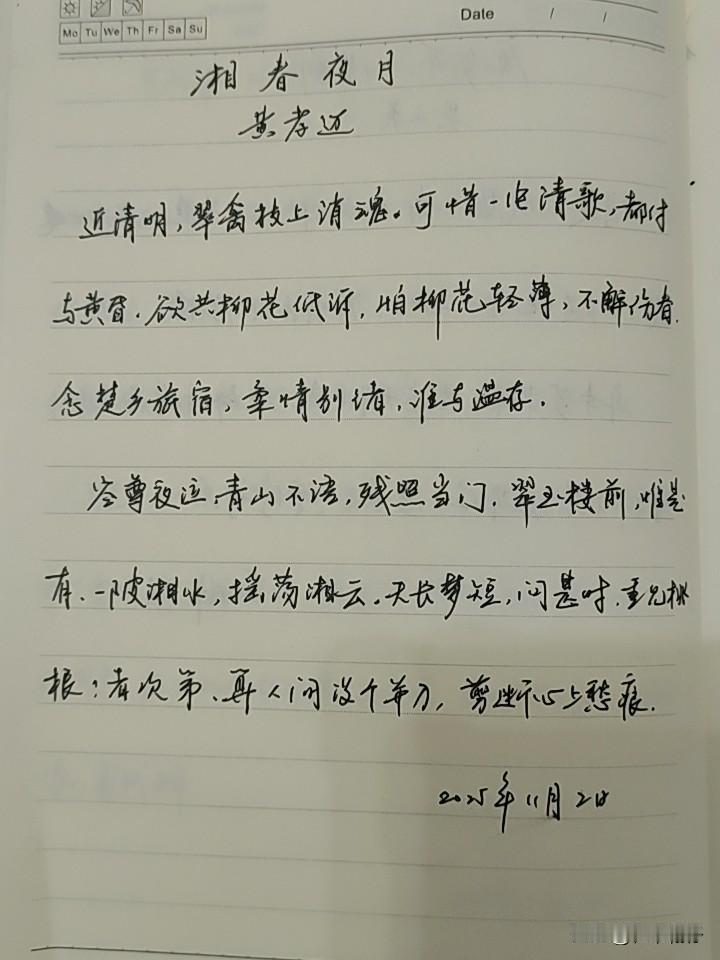 Mo Tu We Th Fr Sa Su
Date / /
湘春夜月
黄孝迈
近清明,翠禽枝上消魂。可惜一片清歌,都付
与黄昏.欲共柳花低诉,怕柳花轻薄,不解伤春.
念楚乡旅宿,柔情别绪,谁与温存.
空尊夜泣,青山不语,残照当门.翠玉楼前,惟是
有、一陂湘水,摇荡湘云.天长梦短,问甚时、重见桃
根?者次第、算人间没个并刀,剪断心上愁痕.
2025年11月2日